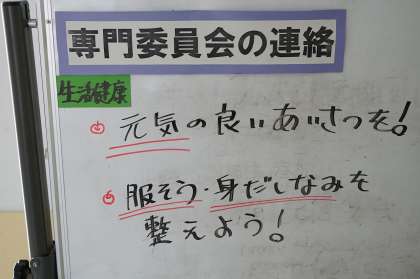 専門委員会の連絡
生活健康
元気の良いあいさつを!
服そう・身だしなみを
整えよう!